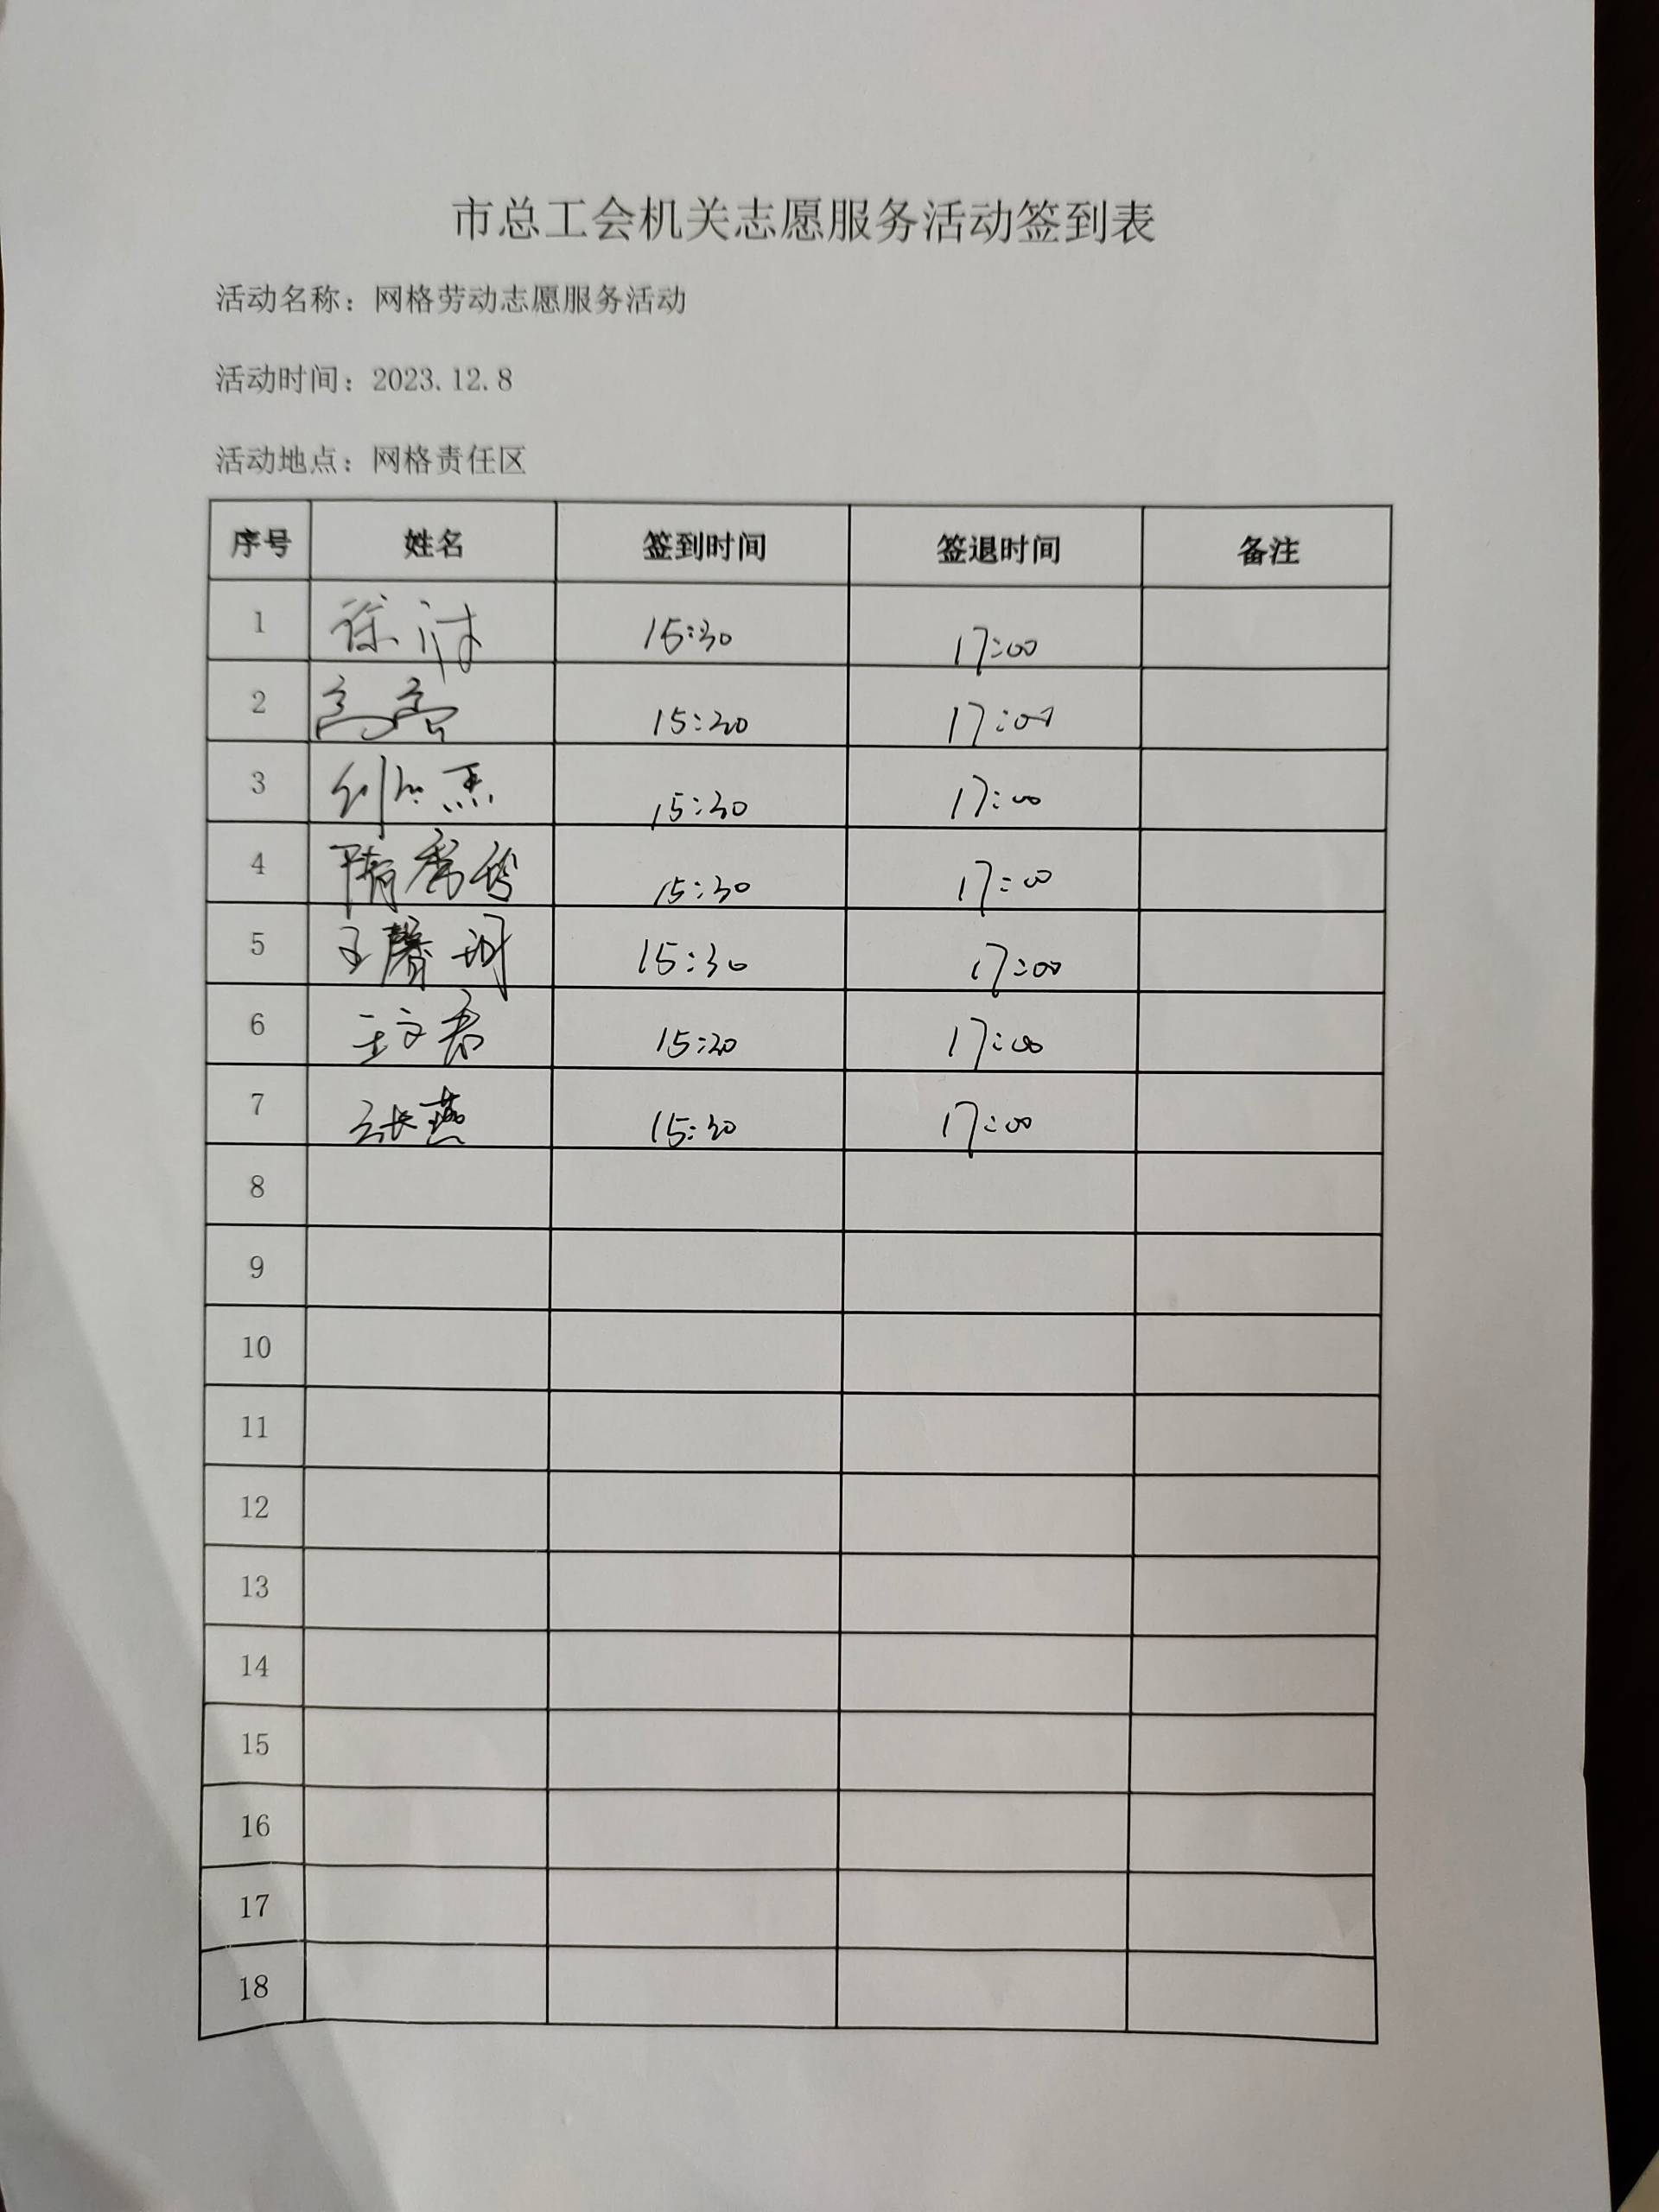 市总工会机关志愿服务活动签到表
活动名称：网格劳动志愿服务活动
活动时间：2023.12.8
活动地点：网格责任区
序号 姓名 签到时间 签退时间 备注
1 徐 15:30 17:00
2 高亮 15:30 17:00
3 刘 杰 15:30 17:00
4 隋 15:30 17:00
5 王馨珂 15:30 17:00
6 王文君 15:30 17:00
7 张燕 15:30 17:00
8
9
10
11
12
13
14
15
16
17
18